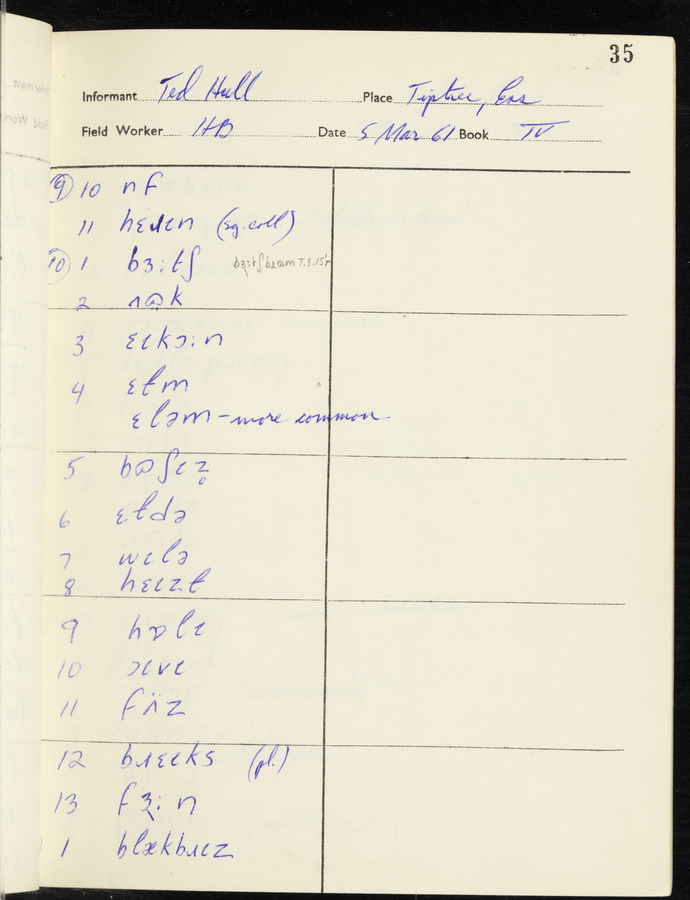 35
Informant Ted Hull Place Tiptree, Ess
Field Worker HB Date 5 Mar 61 Book IV
(9) 10 nf
11 hɛɹɪn (sg. coll)
(10) 1 bɜ:tʃ bɜ:tʃbɹɷm T.3.15r
2 ɷk
3 ɛɪkɔ:n
4 ɛɫm
ɛləm - more common
5 bɷʃɪz̥
6 ɛɫdə
7 wɪlə
8 hɛɪzɫ
9 hɒlɪ
10 ɔɪvɪ
11 fʌ̈z
12 bɹɛɪks (pl.)
13 fɜ:n
1 blækbɹɪz